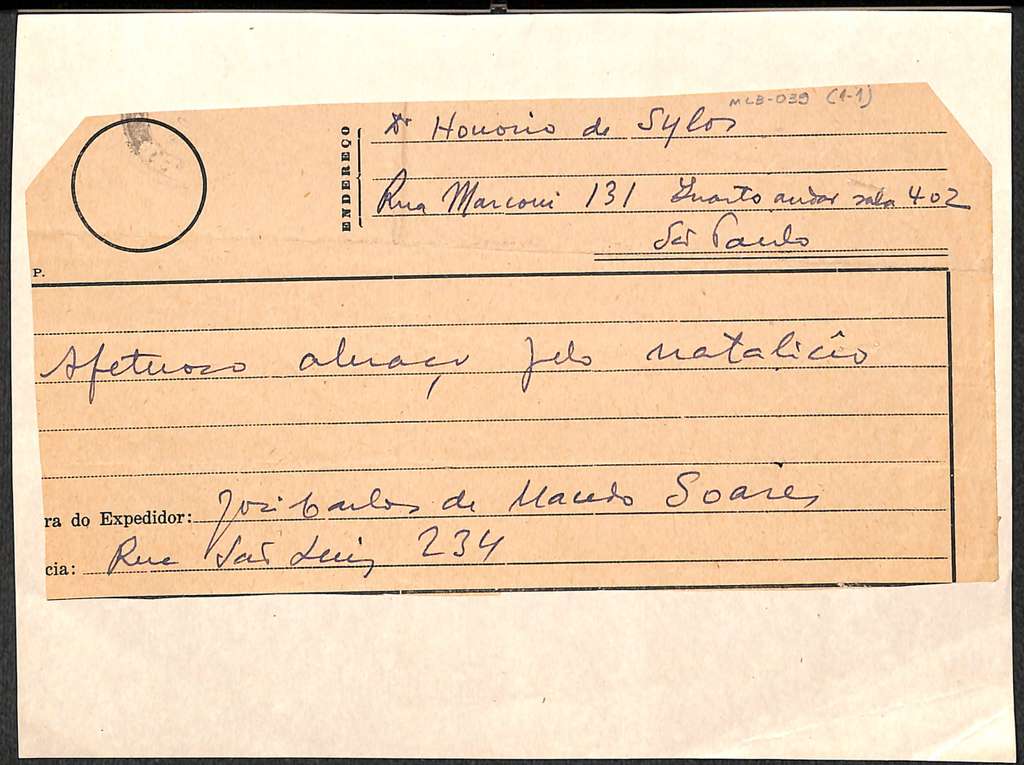 MLB-039 (1-1)
ENDEREÇO
Dr Honorio de Sylos
Rua Marconi 131 Quarto andar sala 402
São Paulo
P.
Afetuoso abraço pelo natalício
ra do Expedidor: José Carlos de Macedo Soares
cia: Rua São Luiz 234